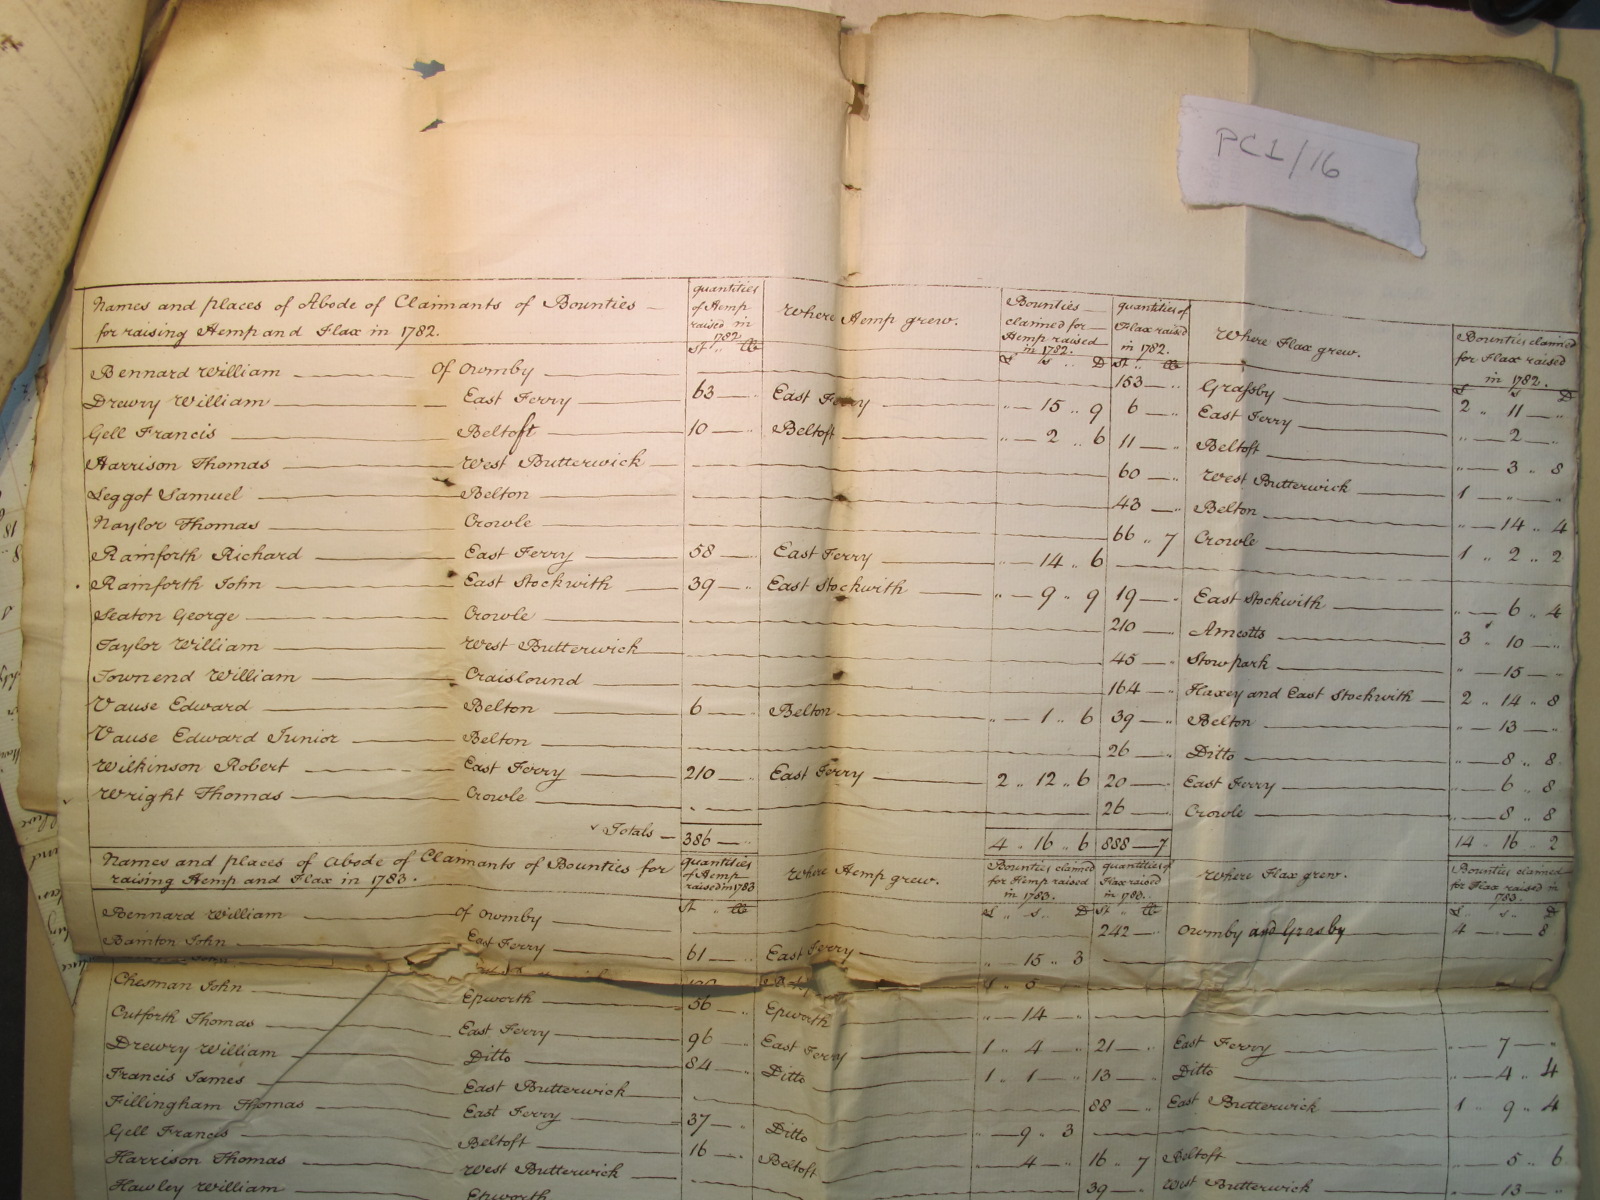 PC1/16
Names and places of Abode of Claimants of Bounties for raising Hemp and Flax in 1782. quantities of Hemp raised in 1782. Where Hemp grew. Bounties claimed for Hemp raised in 1782. quantities of Flax raised in 1782. Where Flax grew. Bounties claimed for Flax raised in 1782.
St lb £ s D St lb £ s D
Bennard William — of Owmby — 153 — Grassby — 2 .. 11 —
Drewry William — East Ferry — 63 — East Ferry — 15 .. 9 6 — East Ferry — 2 —
Gell Francis — Beltoft — 10 — Beltoft — 2 .. 6 11 — Beltoft — 3 .. 8
Harrison Thomas — West Butterwick — 60 — West Butterwick — 1 —
Leggot Samuel — Belton — 43 — Belton — 14 .. 4
Naylor Thomas — Crowle — 66 .. 7 Crowle — 1 .. 2 .. 2
Ramforth Richard — East Ferry — 58 — East Ferry — 14 .. 6 —
Ramforth John — East Stockwith — 39 — East Stockwith — 9 .. 9 19 — East Stockwith — 6 .. 4
Seaton George — Crowle — 210 — Amcotts — 3 .. 10 —
Taylor William — West Butterwick — 45 — Stowpark — 15 —
Townend William — Craislound — 164 — Haxey and East Stockwith — 2 .. 14 .. 8
Vause Edward — Belton — 6 — Belton — 1 .. 6 39 — Belton — 13 —
Vause Edward Junior — Belton — 26 — Ditto — 8 .. 8
Wilkinson Robert — East Ferry — 210 — East Ferry — 2 .. 12 .. 6 20 — East Ferry — 6 .. 8
Wright Thomas — Crowle — 26 — Crowle — 8 .. 8
Totals — 386 — 4 .. 16 .. 6 888 — 7 14 .. 16 .. 2
Names and places of Abode of Claimants of Bounties for raising Hemp and Flax in 1783. quantities of Hemp raised in 1783 Where Hemp grew. Bounties claimed for Hemp raised in 1783. quantities of Flax raised in 1783. Where Flax grew. Bounties claimed for Flax raised in 1783.
St lb £ s D St lb £ s D
Bennard William — of Owmby — 242 — Owmby and Grasby 4 — 8
Bainton John — East Ferry — 61 — East Ferry — 15 .. 3 —
Chesman John — Epworth — 56 — Epworth — 14 —
Cutforth Thomas — East Ferry — 96 — East Ferry 1 .. 4 — 21 — East Ferry — 7 —
Drewry William — Ditto — 84 — Ditto — 1 .. 1 — 13 — Ditto — 4 .. 4
Francis James — East Butterwick — 88 — East Butterwick — 1 .. 9 .. 4
Fillingham Thomas — East Ferry — 37 — Ditto — 9 .. 3 —
Gell Francis — Beltoft — 16 — Beltoft — 4 — 16 .. 7 Beltoft — 5 .. 6
Harrison Thomas — West Butterwick — 39 — West Butterwick — 13 —
Hawley William — Epworth